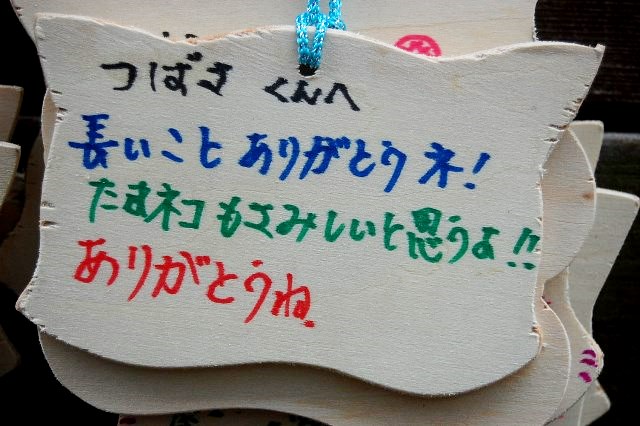 つばさ くんへ
長いこと ありがとうネ!
たまネコ もさみしいと思うよ!!
ありがとうね